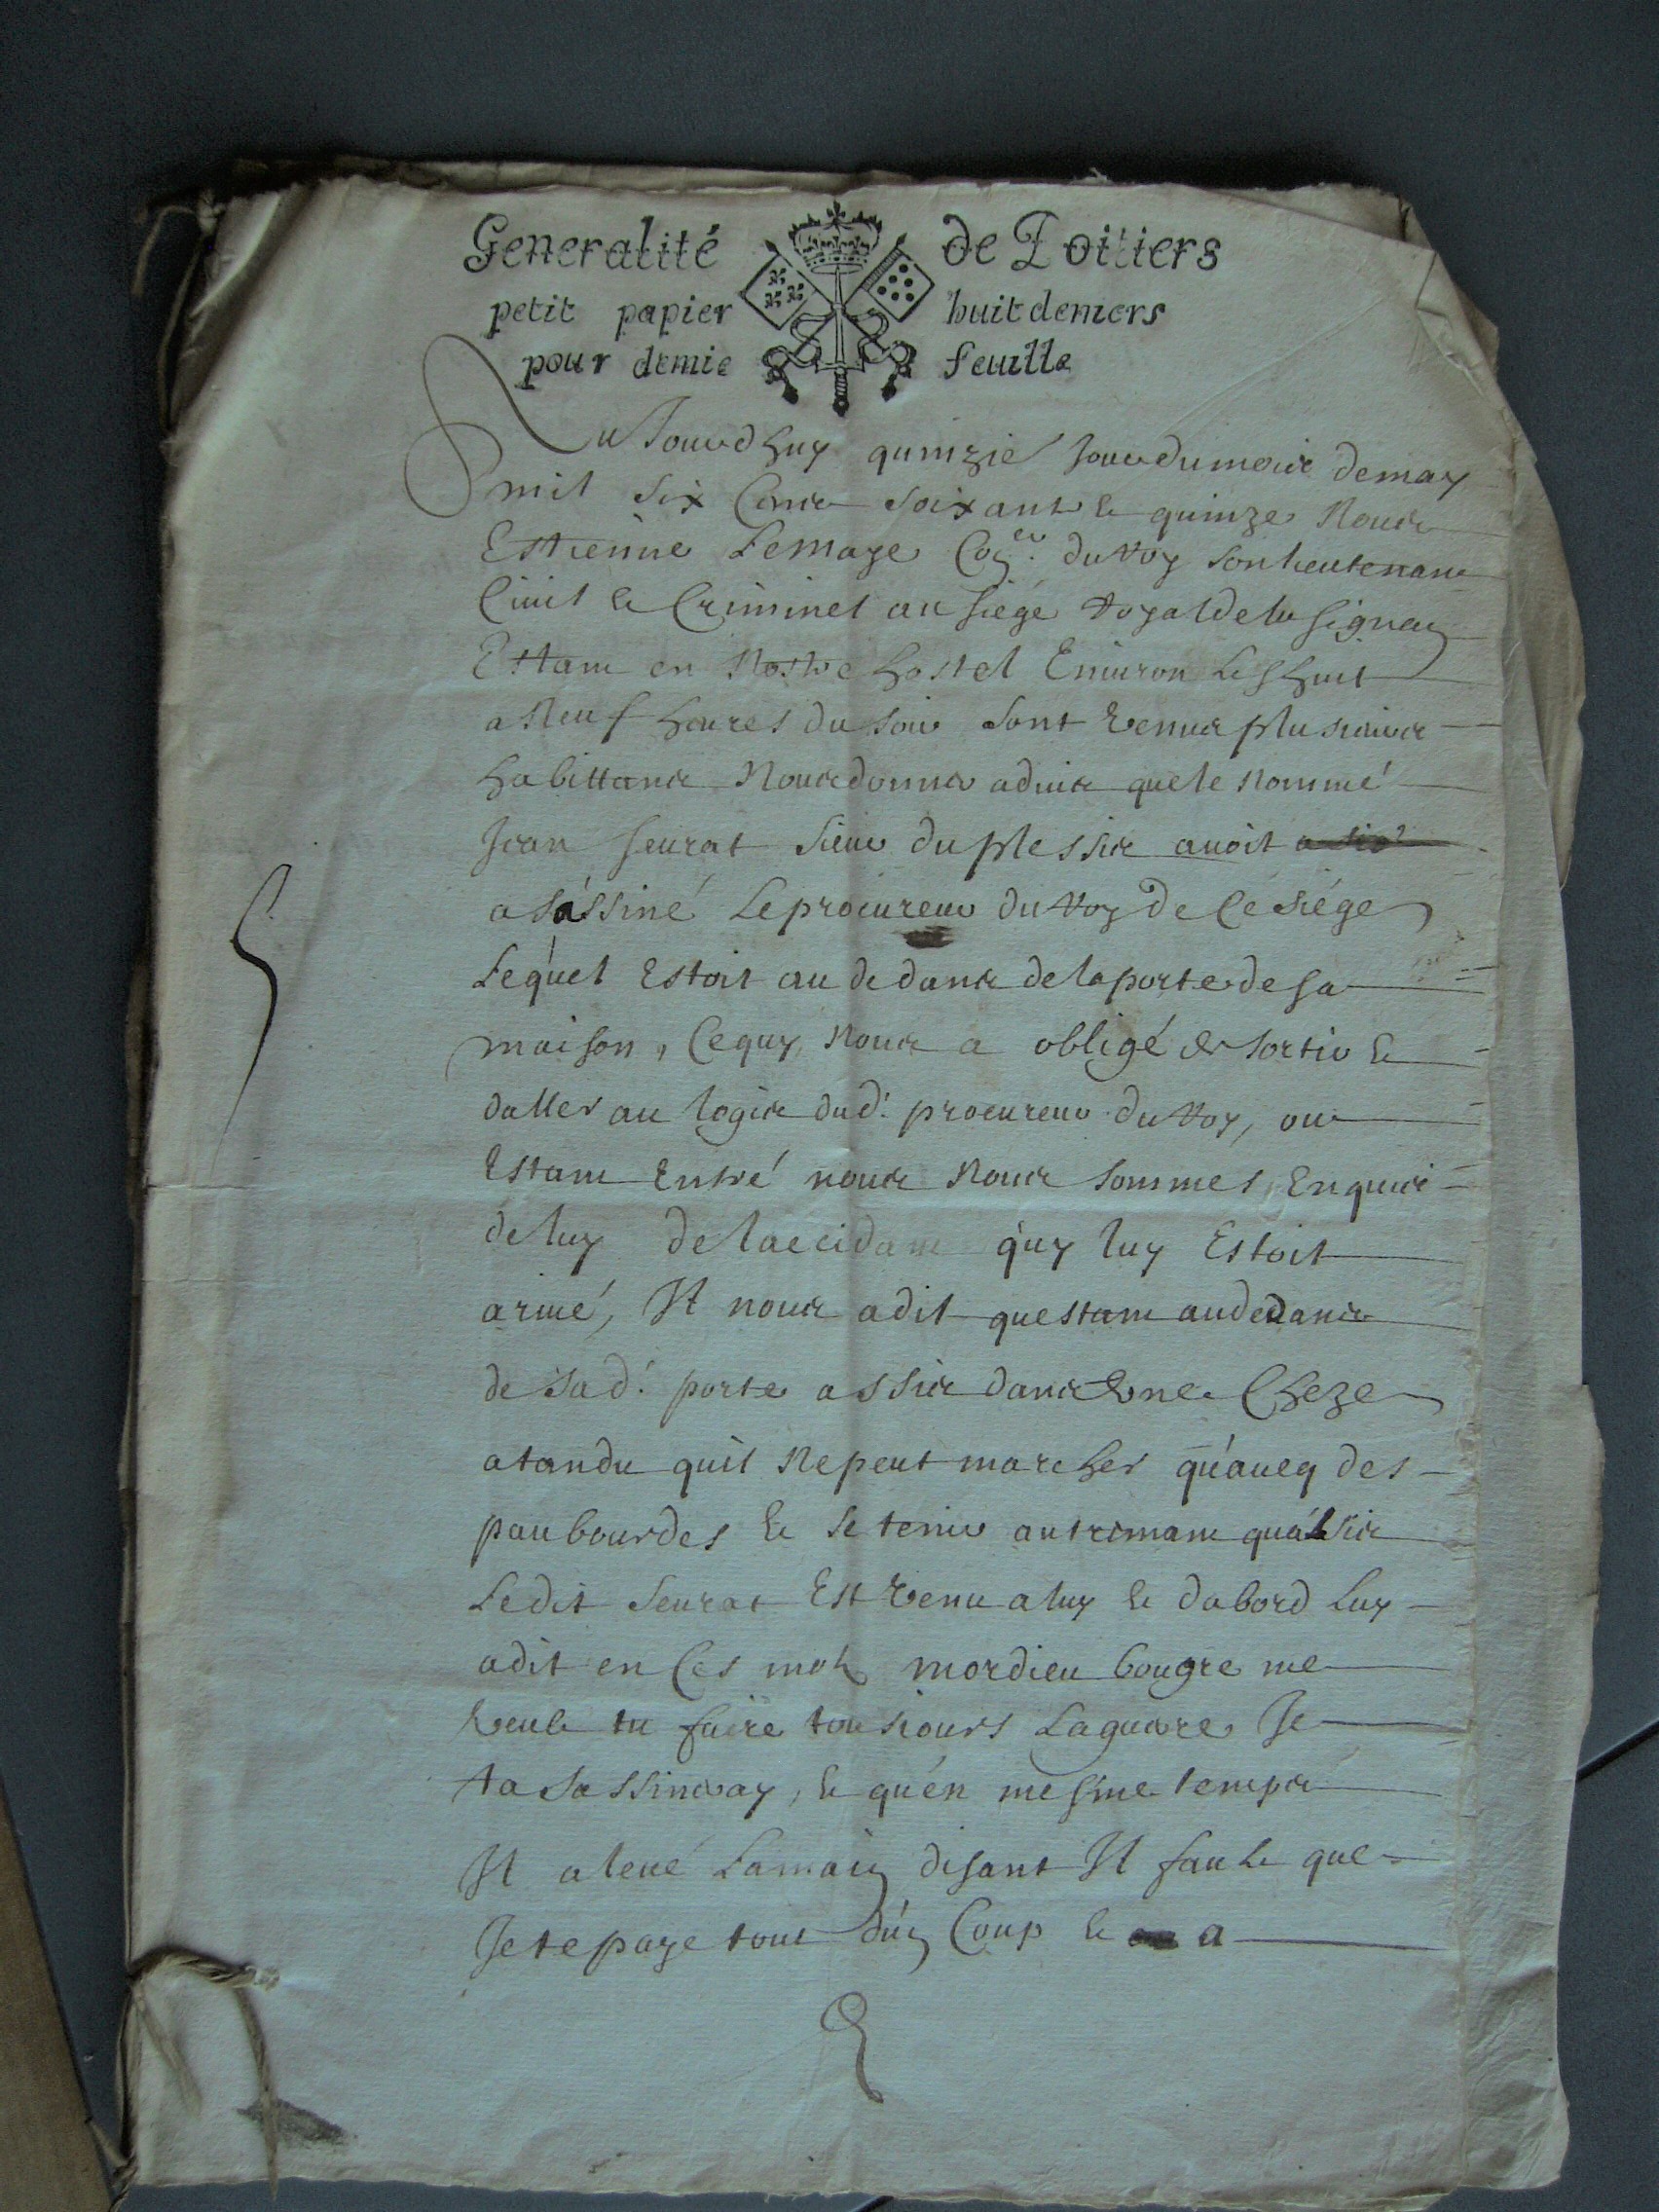 Generalité de Poitiers
petit papier huit deniers
pour demie feuille
Au Jourdhuy quinzie Jour du mois de may
mil six Cens soixante & quinze Nous
Estienne Lemaye Coner. du Roy son lieutenant
Ciuil & Criminel au siege Royal de lusignan
Estant en Nostre hostel Enuiron les huit
a Neuf heures du soir sont venus plusieurs
habittans Nous donner aduis que le nommé
Jean seurat sieur du plessis auoit
asássiné Le procureur du Roy de Cé siége
Lequel Estoit au dedans de la porte de sa
maison, Ce quy Nous a obligé de sortir &
daller au logis dud. procureur du Roy, ou
Estant Entré nous Nous sommes Enquis
de luy de laccidant quy luy Estoit
ariué, Il nous a dit questant au dedans
de sad. porte assis dans vne Cheze
atandu quil Ne peut marcher qu'aueq des
paubourdes & se tenir autremant quássis
Ledit seurat Est venu a luy & dabord Luy
a dit en Ces mots mordieu bougre me
veule tu faire tousiours La guerre Je
tasassineray, & qu'én mesme temps
Il a leué La main disant Il faut que
Je te paye tout dún Coup & a